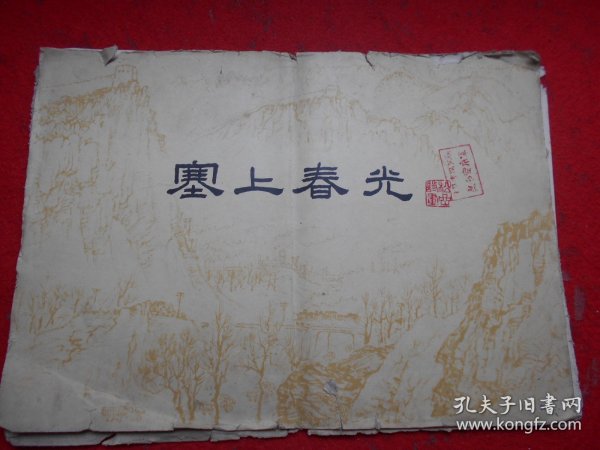 塞上春光
孔夫子旧书网
www.kongfz.com